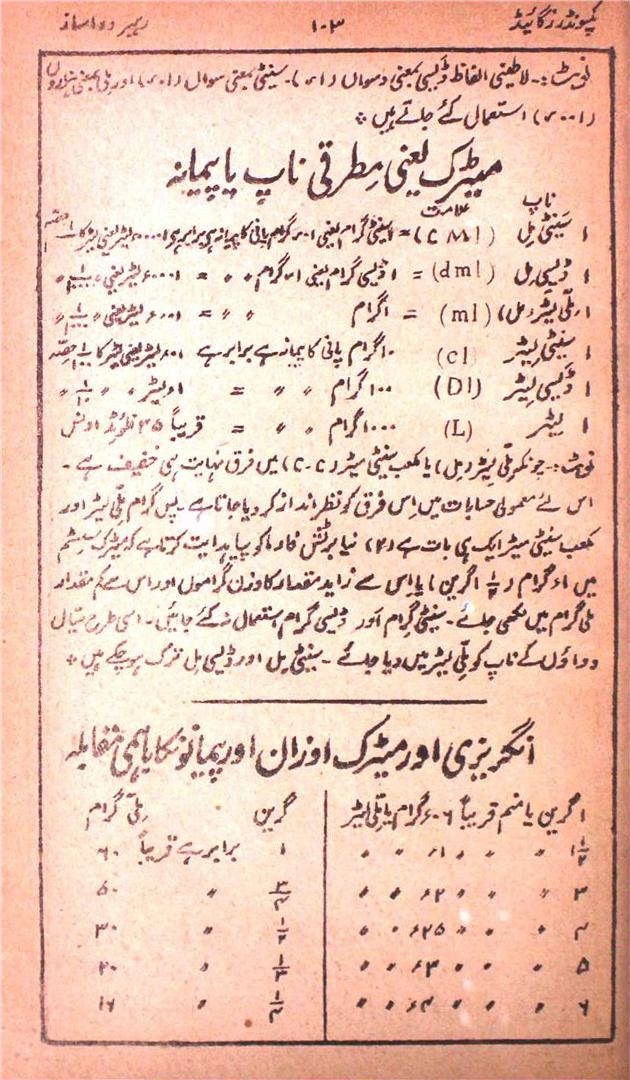 کمپونڈرز گائیڈ ۱۰۳ رہبر دواساز
نوٹ:۔ لاطینی الفاظ ڈیسی بمعنی دسواں (۱ء) ۔ سینٹی بمعنی سواں (۰۱ء) اور ملی بمعنی ہزارواں
(۰۰۱ء) استعمال کئے جاتے ہیں *
میٹرک یعنی مطرقی ناپ یا پیمانہ
ناپ علامت
۱ سینٹی مل (cMl) = ۱ سینٹی گرام یعنی ۰۱ء گرام پانی کا پیمانہ ہے برابر ہے
۱ ڈیسی مل (dml) = ۱ ڈیسی گرام یعنی ۱ء گرام 〃 〃 =
۱ ملی لیٹر (مل) (ml) = ۱ گرام 〃 〃 = ۰۰۱ء لیٹر یعنی
۱ سینٹی لیٹر (cl) ۱۰ گرام پانی کا پیمانہ ہے برابر ہے ۰۱ء لیٹر یعنی لیٹر کا حصہ
۱ ڈیسی لیٹر (Dl) ۱۰۰ گرام 〃 〃 = ۱ء لیٹر 〃 〃
۱ لیٹر (L) ۱۰۰۰ گرام 〃 〃 = قریباً ۳۵ فلوئڈ اونس
نوٹ:۔ چونکہ ملی لیٹر (مل) یا مکعب سینٹی میٹر (c.c) میں فرق نہایت ہی خفیف ہے ۔
اس لئے معمولی حسابات میں اس فرق کو نظر انداز کر دیا جاتا ہے ۔ پس گرام ملی لیٹر اور
مکعب سینٹی میٹر ایک ہی بات ہے (۲) نیا برٹش فارماکوپیا ہدایت کرتا ہے کہ میٹرک سسٹم
میں ۱ء گرام (۱ ۱/۲ گرین) یا اس سے زاید مقدار کا وزن گراموں اور اس سے کم مقدار
ملی گرام میں لکھی جائے ۔ سینٹی گرام اور ڈیسی گرام استعمال نہ کئے جائیں ۔ اسی طرح سیال
دواؤں کے ناپ کو ملی لیٹر میں دیا جائے ۔ سینٹی مل اور ڈیسی مل ترک ہو چکے ہیں *
انگریزی اور میٹرک اوزان اور پیمانونکا باہمی مقابلہ
۱ گرین یا منم قریباً ۰۶ء گرام یا ملی لیٹر
۱ ۱/۲ 〃 〃 〃 ۱ء 〃 〃
۳ 〃 〃 〃 ۲ء 〃 〃
۴ 〃 〃 〃 ۲۵ء 〃 〃
۵ 〃 〃 〃 ۳ء 〃 〃
۶ 〃 〃 〃 ۴ء 〃 〃
گرین ملی گرام
۱ برابر ہے قریباً ۶۰
۳/۴ 〃 ۵۰
۱/۲ 〃 ۳۰
۱/۳ 〃 ۲۰
۱/۴ 〃 ۱۶